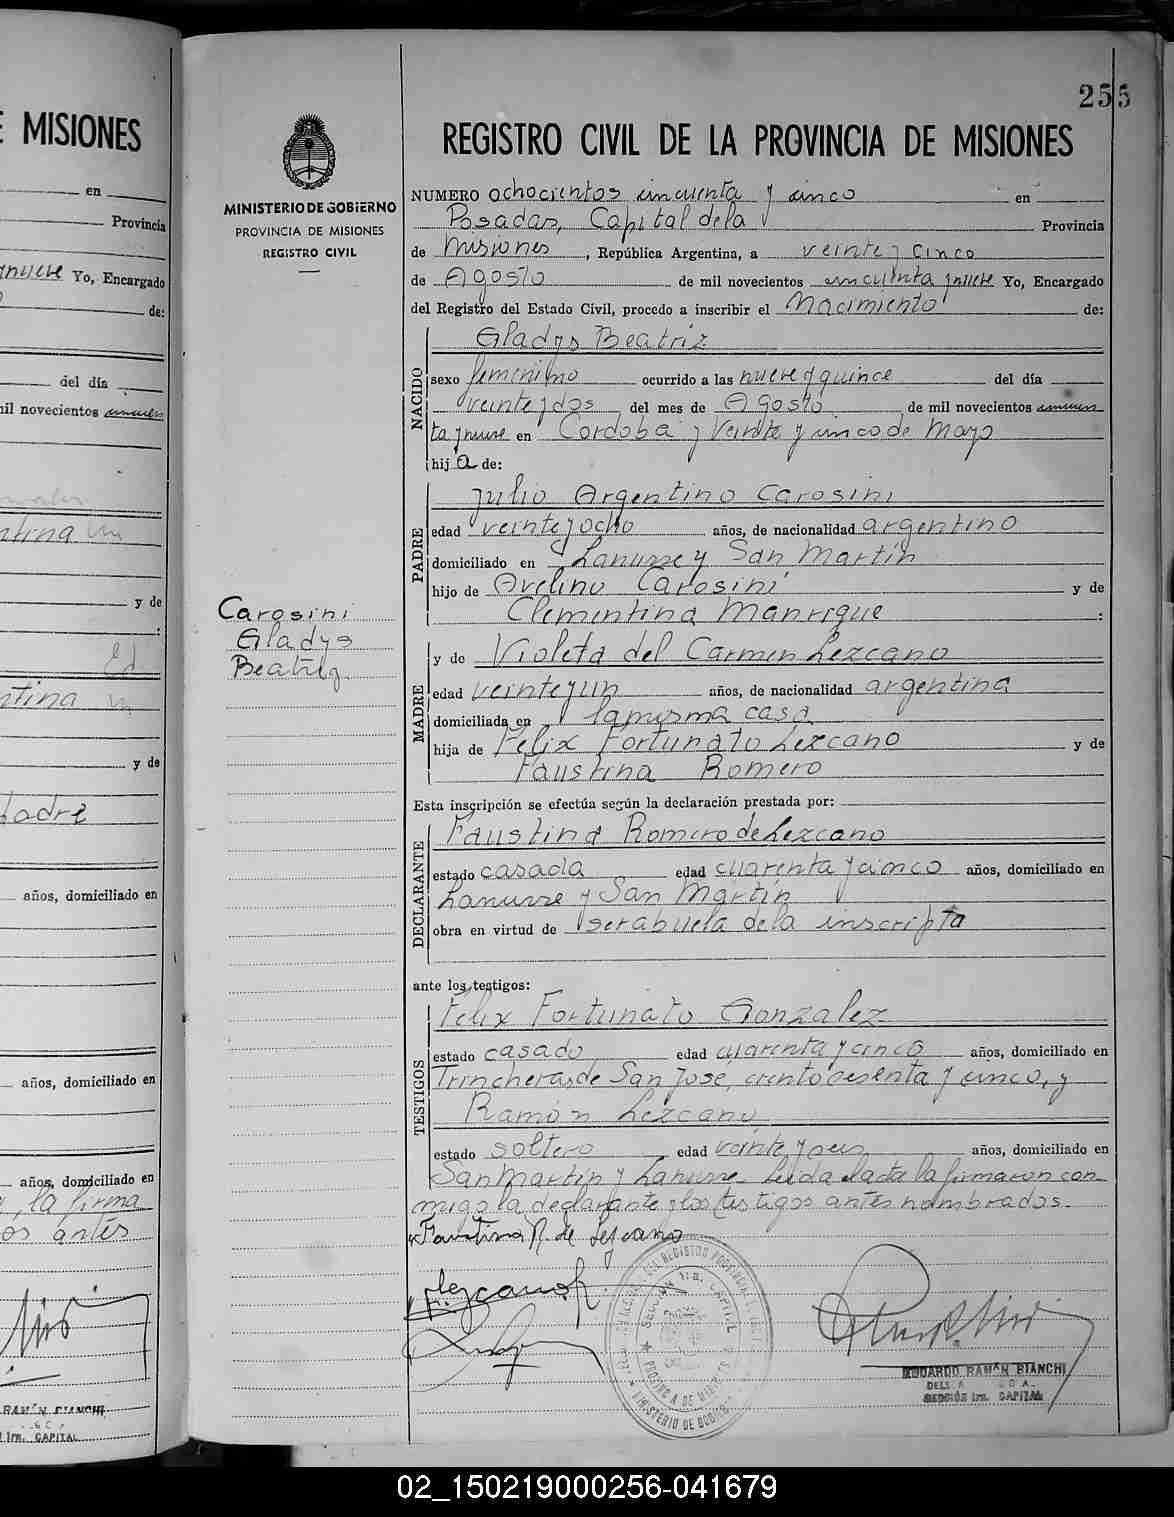 E MISIONES
en
Provincia
Yo, Encargado
de:
del día
mil novecientos
y de
y de
años, domiciliado en
años, domiciliado en
años, domiciliado en
la firma
os antes
255
MINISTERIO DE GOBIERNO
PROVINCIA DE MISIONES
REGISTRO CIVIL
Carosini
Gladys
Beatriz
REGISTRO CIVIL DE LA PROVINCIA DE MISIONES
NUMERO ochocientos cincuenta y cinco en
Posadas, Capital de la Provincia
de Misiones, República Argentina, a veinte y cinco
de Agosto de mil novecientos cincuenta y nueve Yo, Encargado
del Registro del Estado Civil, procedo a inscribir el Nacimiento de:
NACIDO
Gladys Beatriz
sexo femenino ocurrido a las nueve y quince del día
veinte y dos del mes de Agosto de mil novecientos cincuen
ta y nueve en Cordoba y Veinte y cinco de Mayo
hija de:
PADRE
Julio Argentino Carosini
edad veinte y ocho años, de nacionalidad argentino
domiciliado en Lanusse y San Martín
hijo de Avelino Carosini y de
Clementina Manrique :
MADRE
y de Violeta del Carmen Lezcano
edad veinte y un años, de nacionalidad argentina
domiciliada en la misma casa
hija de Felix Fortunato Lezcano y de
Faustina Romero
Esta inscripción se efectúa según la declaración prestada por:
DECLARANTE
Faustina Romero de Lezcano
estado casada edad cuarenta y cinco años, domiciliado en
Lanusse y San Martín
obra en virtud de ser abuela de la inscripta
ante los testigos:
TESTIGOS
Felix Fortunato Gonzalez
estado casado edad cuarenta y cinco años, domiciliado en
Trincheras de San José, ciento sesenta y cinco, y
Ramón Lezcano
estado soltero edad veinte y años, domiciliado en
San Martín y Lanusse Leida el acta la firmaron con
migo la declarante y los testigos antes nombrados.
Faustina R. de Lezcano
F. Lezcano
EDUARDO RAMÓN BIANCHI
SECCIÓN 1ra. CAPITAL
02_150219000256-041679